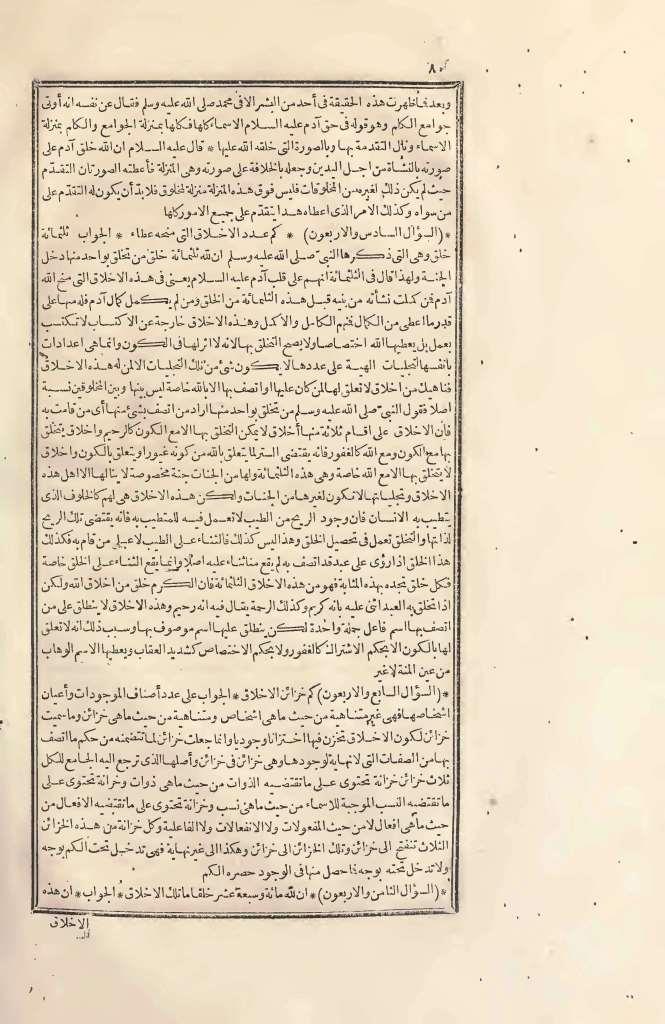 ٨٠
وبعد فما ظهرت هذه الحقيقة في أحد من البشر الا في محمد صلى الله عليه وسلم فقال عن نفسه انه أوتي
جوامع الكلم وهو قوله في حق آدم عليه السلام الاسماء كلها فكلها بمنزلة الجوامع والكلم بمنزلة
الاسماء ونال التقدمة بها وبالصورة التي خلقه الله عليها * قال عليه السلام ان الله خلق آدم على
صورته بالنشأة من اجل اليدين وجعله بالخلافة على صورته وهي المنزلة فأعطته الصورتان التقدم
حيث لم يكن ذلك لغيره من المخلوقات فليس فوق هذه المنزلة منزلة لمخلوق فلابد أن يكون له التقدم على
من سواه وكذلك الامر الذي اعطاه هذا يتقدم على جميع الامور كلها
* (السؤال السادس والاربعون) * كم عدد الاخلاق التي منحه عطاء * الجواب ثلثمائة
خلق وهي التي ذكرها النبي صلى الله عليه وسلم ان لله ثلثمائة خلق من تخلق بواحد منها دخل
الجنة ولهذا قال في الثلثمائة انهم على قلب آدم عليه السلام يعني في هذه الاخلاق التي منح الله
آدم فمن كملت نشأته من بنيه قبل هذه الثلثمائة من الخلق ومن لم يكمل كمال آدم فله منها على
قدر ما اعطي من الكمال فمنهم الكامل والاكمل وهذه الاخلاق خارجة عن الاكتساب لا تكتسب
بعمل بل يعطيها الله اختصاصا ولا يصح التخلق بها لانه لا اثر لها في الكون وانما هي اعدادات
بانفسها لتجليات الهية على عددها لا يكون شئ من تلك التجليات الا لمن له هذه الاخلاق
فناهيك من اخلاق لا تعلق لها لمن كان عليها او اتصف بها الا بالله خاصة ليس بينها وبين المخلوقين نسبة
اصلا فقول النبي صلى الله عليه وسلم من تخلق بواحد منها اراد من اتصف بشئ منها أي من قامت به
فان الاخلاق على اقسام ثلاثة منها أخلاق لا يمكن التخلق بها الا مع الكون كالرحيم واخلاق يتخلق
بها مع الكون ومع الله كالغفور فانه يقتضي الستر لما يتعلق بالله من كونه غيورا ويتعلق بالكون واخلاق
لا يتخلق بها الا مع الله خاصة وهي هذه الثلثمائة ولها من الجنات جنة مخصوصة لا ينالها الا اهل هذه
الاخلاق وتجلياتها لا تكون لغيرها من الجنات ولكن هذه الاخلاق هي لهم كالخلوف الذي
يتطيب به الانسان فان وجود الريح من الطيب لا تعمل فيه للمتطيب به فانه يقتضي تلك الريح
لذاتها والتخلق تعمل في تحصيل الخلق وهذا ليس كذلك فالثناء على الطيب لا على من قام به فكذلك
هذا الخلق اذا رؤي على عبد قد اتصف به لم يقع منا ثناء عليه اصلا وانما يقع الثناء على الخلق خاصة
فكل خلق تجده بهذه المثابة فهو من هذه الاخلاق الثلثمائة فان الكرم خلق من اخلاق الله ولكن
اذا تخلق به العبد اثني عليه بانه كريم وكذلك الرحمة يقال فيه انه رحيم وهذه الاخلاق لا ينطلق على من
اتصف بها اسم فاعل جملة واحدة لكن ينطلق عليها اسم موصوف بها وسبب ذلك انه لا تعلق
لها بالكون الا بحكم الاشتراك كالغفور ولا بحكم الاختصاص كشديد العقاب ويعطيها الاسم الوهاب
من عين المنة لا غير
* (السؤال السابع والاربعون) كم خزائن الاخلاق * الجواب على عدد أصناف الموجودات وأعيان
اشخاصها فهي غير متناهية من حيث ما هي اشخاص ومتناهية من حيث ما هي خزائن وما سميت
خزائن لكون الاخلاق تختزن فيها اختزانا وجوديا وانما جعلت خزائن لما تتضمنه من حكم ما اتصف
بها من الصفات التي لا نهاية لوجودها وهي خزائن في خزائن وأصلها الذي ترجع اليه الجامع للكل
ثلاث خزائن خزانة تحتوي على ما تقتضيه الذوات من حيث ما هي ذوات وخزانة تحتوي على
ما تقتضيه النسب الموجبة للاسماء من حيث ما هي نسب وخزانة تحتوي على ما تقتضيه الافعال من
حيث ما هي افعال لا من حيث المفعولات ولا الانفعالات ولا الفاعلية وكل خزانة من هذه الخزائن
الثلاث تنفتح الى خزائن وتلك الخزائن الى خزائن وهكذا الى غير نهاية فهي تدخل تحت الكم بوجه
ولا تدخل تحته بوجه فما حصل منها في الوجود حصره الكم
* (السؤال الثامن والاربعون) * ان لله مائة وسبعة عشر خلقا ما تلك الاخلاق * الجواب * ان هذه
الاخلاق